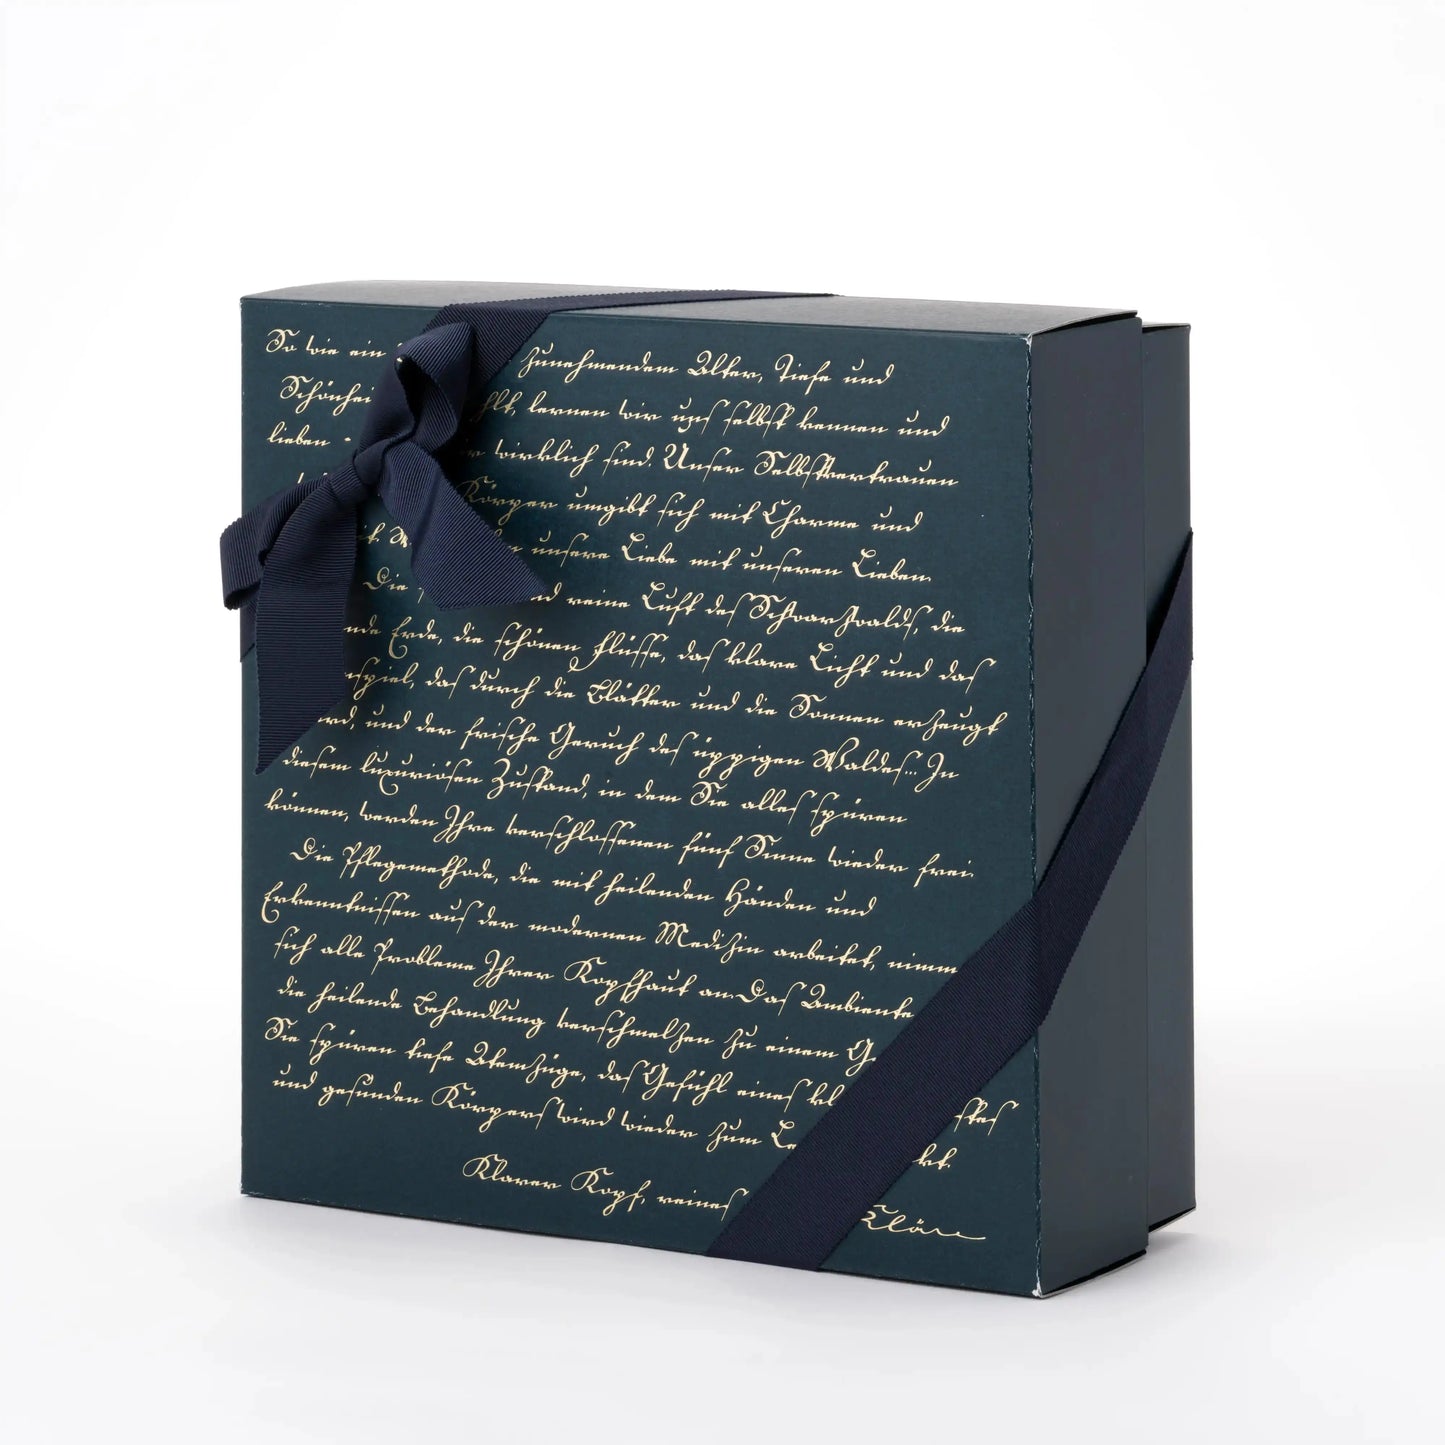 So wie ein zunehmendem Alter, Tiefe und
Schönhei hlt, lernen wir uns selbst kennen und
lieben - r wirklich sind. Unser Selbstvertrauen
Körper umgibt sich mit Charme und
unsere Liebe mit unseren Lieben.
Die nd reine Luft des Schwarzwalds, die
nde Erde, die schönen Flüsse, das klare Licht und das
nspiel, das durch die Blätter und die Sonnen erzeugt
ird, und der frische Geruch des üppigen Waldes... In
diesem luxuriösen Zustand, in dem Sie alles spüren
können, werden Ihre verschlossenen fünf Sinne wieder frei.
Die Pflegemethode, die mit heilenden Händen und
Erkenntnissen aus der modernen Medizin arbeitet, nimm
sich alle Probleme Ihrer Kopfhaut an. Das Ambiente
die heilende Behandlung verschmelzen zu einem G
Sie spüren tiefe Atemzüge, das Gefühl eines kl stes
und gesunden Körpers wird wieder zum Le kt.
Klarer Kopf, reines